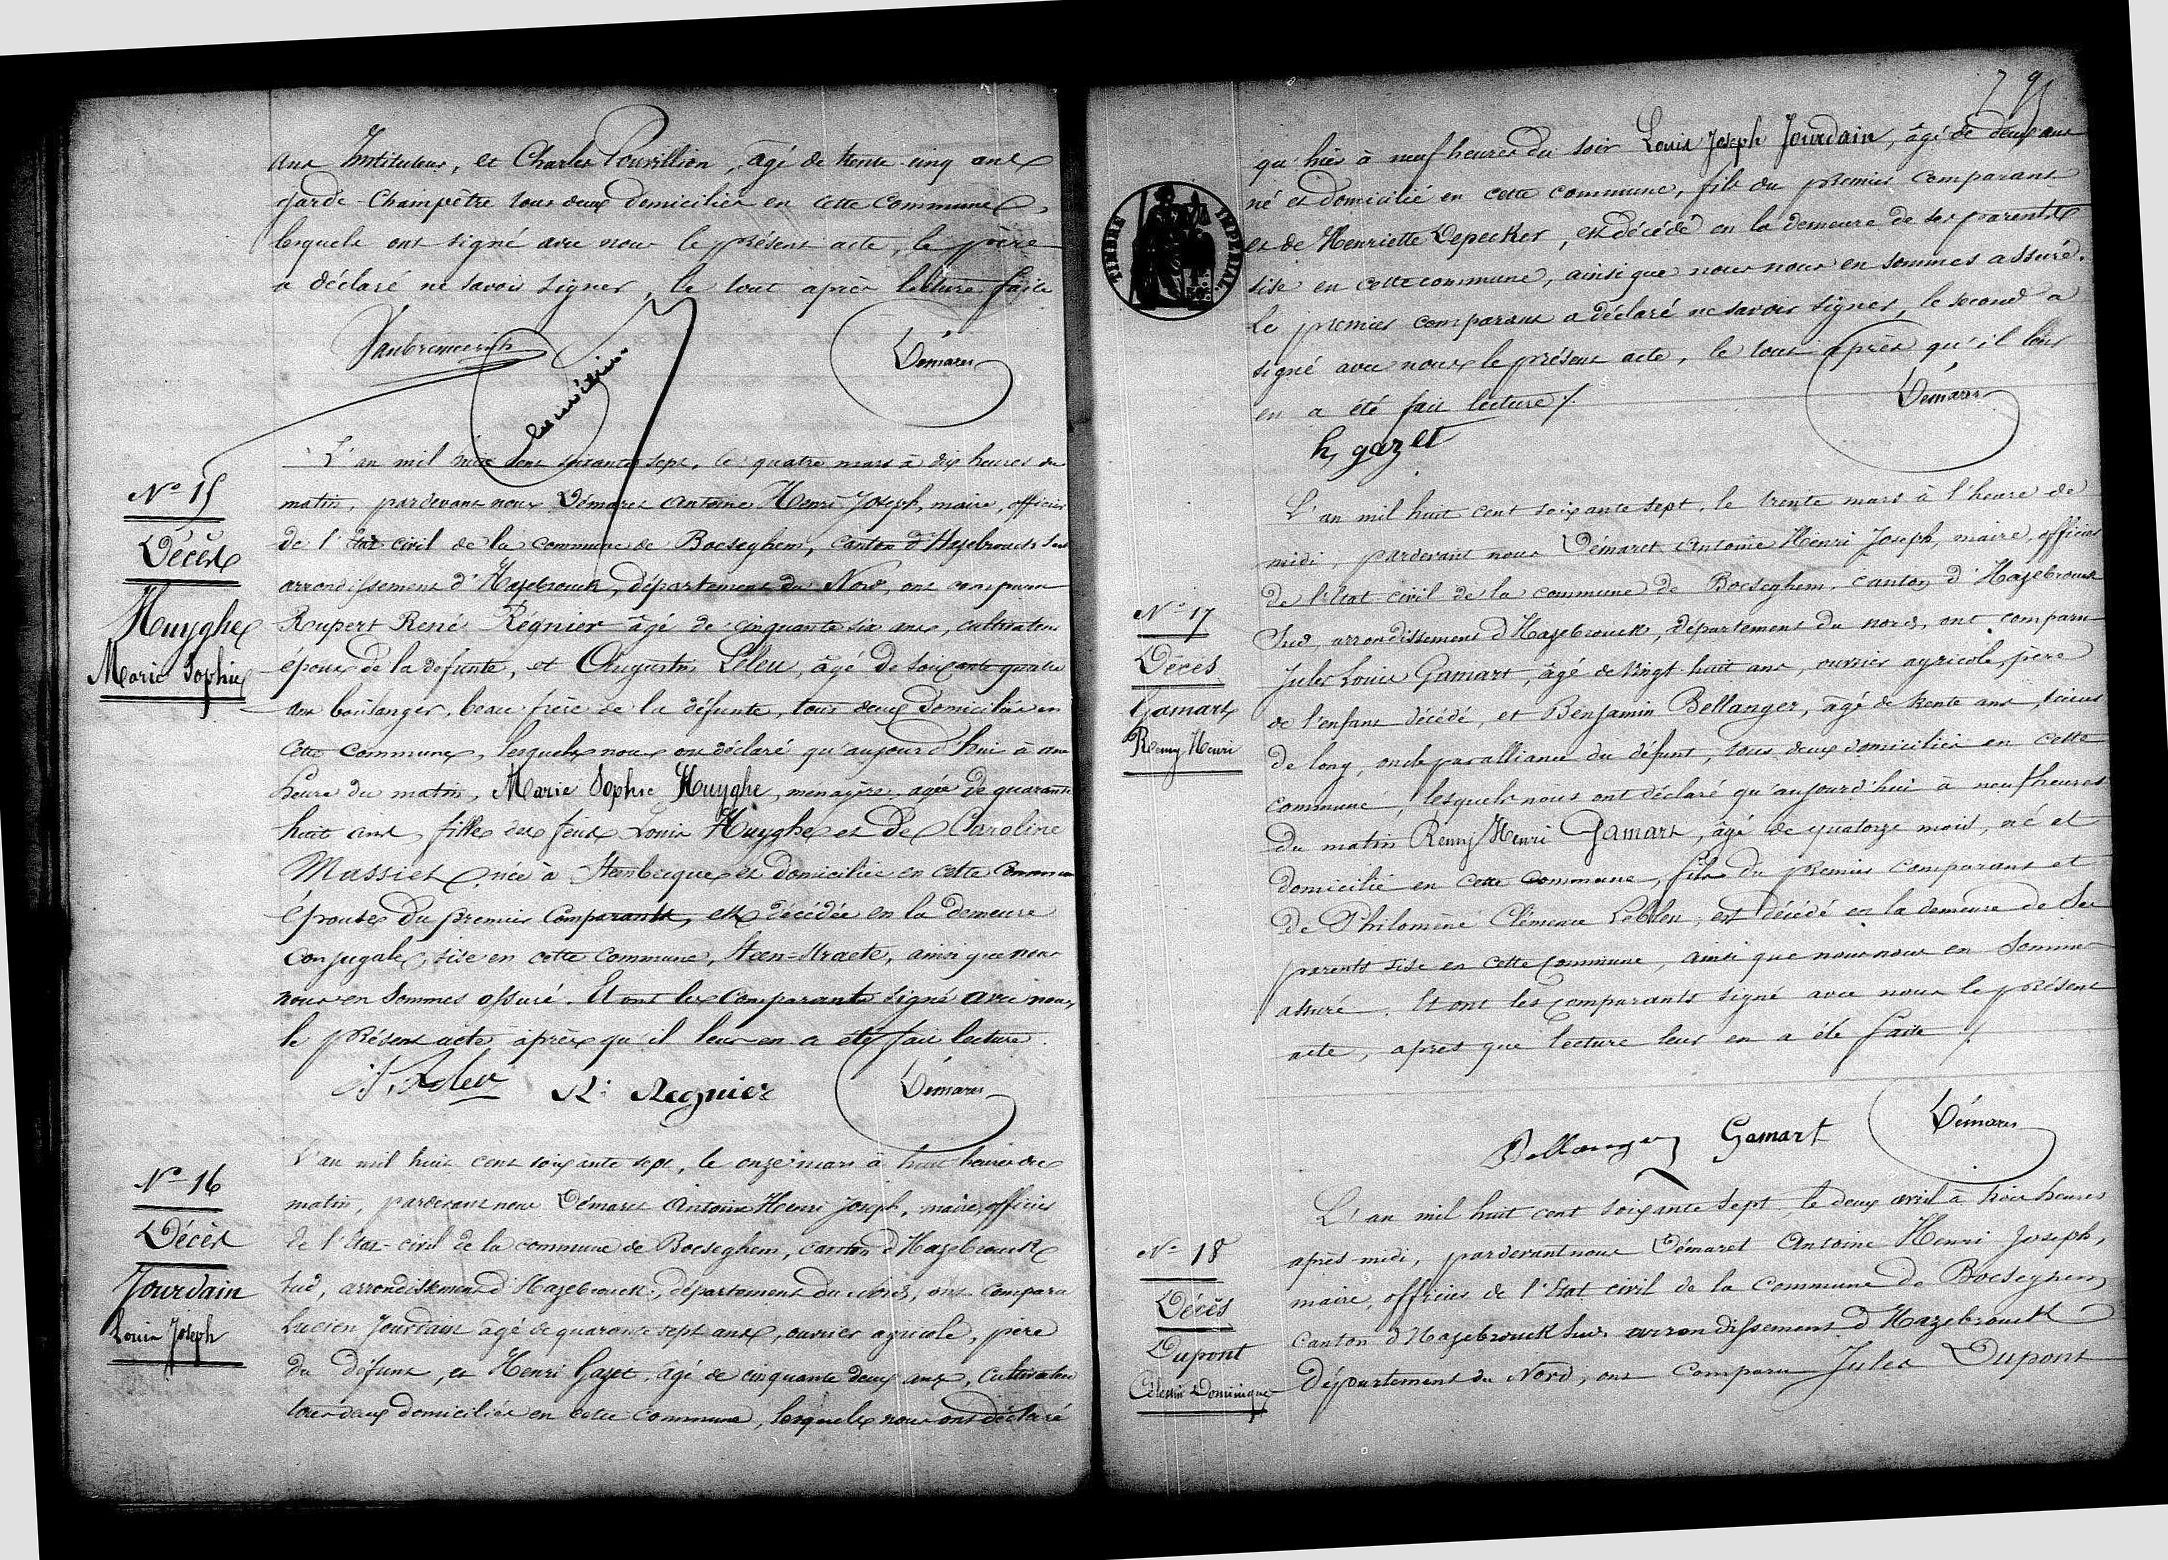 ans Instituteur, et Charles Pouvillion, âgé de trente cinq ans
garde-Champêtre tous deux domiciliés en cette Commune,
lesquels ont signé avec nous le présent acte, le père
a déclaré ne savoir signer, le tout après lecture faite
Démaret
L'an mil huit cent soixante sept, le quatre mars à dix heures du
matin, pardevant nous Démaret Antoine Henri Joseph, maire, officier
de l'Etat civil de la commune de Boeseghem, canton d'Hazebrouck Sud
arrondissement d'Hazebrouck, département du Nord, ont comparu
Rupert René Régnier âgé de cinquante six ans, cultivateur
époux de la défunte, et Augustin Leleu, âgé de soixante quatre
ans boulanger, beau frère de la défunte, tous deux domiciliés en
cette commune, lesquels nous ont déclaré qu'aujourd'hui à une
heure du matin, Marie Sophie Huyghe, ménagère, agée de quarante
huit ans, fille des feux Louis Huyghe et de Caroline
Massiet, née à Steenbecque et domiciliée en cette Commune
épouse du premier Comparant, est décédée en la demeure
conjugale, sise en cette commune, Steen-Straete, ainsi que nous
nous en sommes assuré. Et ont les Comparants signé avec nous,
le présent acte après qu'il leur en a été fait lecture.
Leleu R. Regnier Démaret
N° 15
Décès
Huyghe
Marie Sophie
L'an mil huit cent soixante sept, le onze mars à huit heures du
matin, pardevant nous Démaret Antoine Henri Joseph, maire, officier
de l'Etat-civil de la commune de Boeseghem, canton d'Hazebrouck
Sud, arrondissement d'Hazebrouck, département du Nord, ont comparu
Lucien Jourdain âgé de quarante sept ans, ouvrier agricole, père
du défunt, et Henri Gazet, âgé de cinquante deux ans, cultivateur
tous deux domiciliés en cette commune, lesquels nous ont déclaré
N° 16
Décès
Jourdain
Louis Joseph
qu'hier à neuf heures du soir Louis Joseph Jourdain, âgé de deux ans
né et domicilié en cette commune, fils du premier comparant
et de Henriette Depecker, est décédé en la demeure de ses parents
sise en cette commune, ainsi que nous nous en sommes assuré.
Le premier comparant a déclaré ne savoir signer, le second a
signé avec nous le présent acte, le tout après qu'il leur
en a été fait lecture /.
h, gazet Démaret
TIMBRE IMPERIAL
L'an mil huit cent soixante sept, le trente mars à l'heure de
midi, pardevant nous Démaret Antoine Henri Joseph, maire, officier
de l'Etat civil de la commune de Boeseghem, canton d'Hazebrouck
Sud, arrondissement d'Hazebrouck, département du nord, ont comparu
Jules Louis Gamart, âgé de vingt huit ans, ouvrier agricole, père
de l'enfant décédé, et Benjamin Bellanger, âgé de trente ans, scieur
de long, oncle par alliance du défunt, tous deux domiciliés en cette
commune, lesquels nous ont déclaré qu'aujourd'hui à neuf heures
du matin Remy Henri Gamart, âgé de quatorze mois, né et
domicilié en cette commune, fils du premier comparant et
de Philomène Clémence Lebleu, est décédé en la demeure de ses
parents sise en cette commune, ainsi que nous nous en sommes
assuré. Et ont les comparants signé avec nous le présent
acte, après que lecture leur en a été faite /.
Bellanger Gamart Démaret
N° 17
Décès
Gamart
Remy Henri
L'an mil huit cent soixante sept, le deux avril à trois heures
après midi, pardevant nous Démaret Antoine Henri Joseph,
maire, officier de l'Etat civil de la commune de Boeseghem,
canton d'Hazebrouck Sud arrondissement d'Hazebrouck
département du Nord, ont comparu Jules Dupont
N° 18
Décès
Dupont
Célestin Dominique